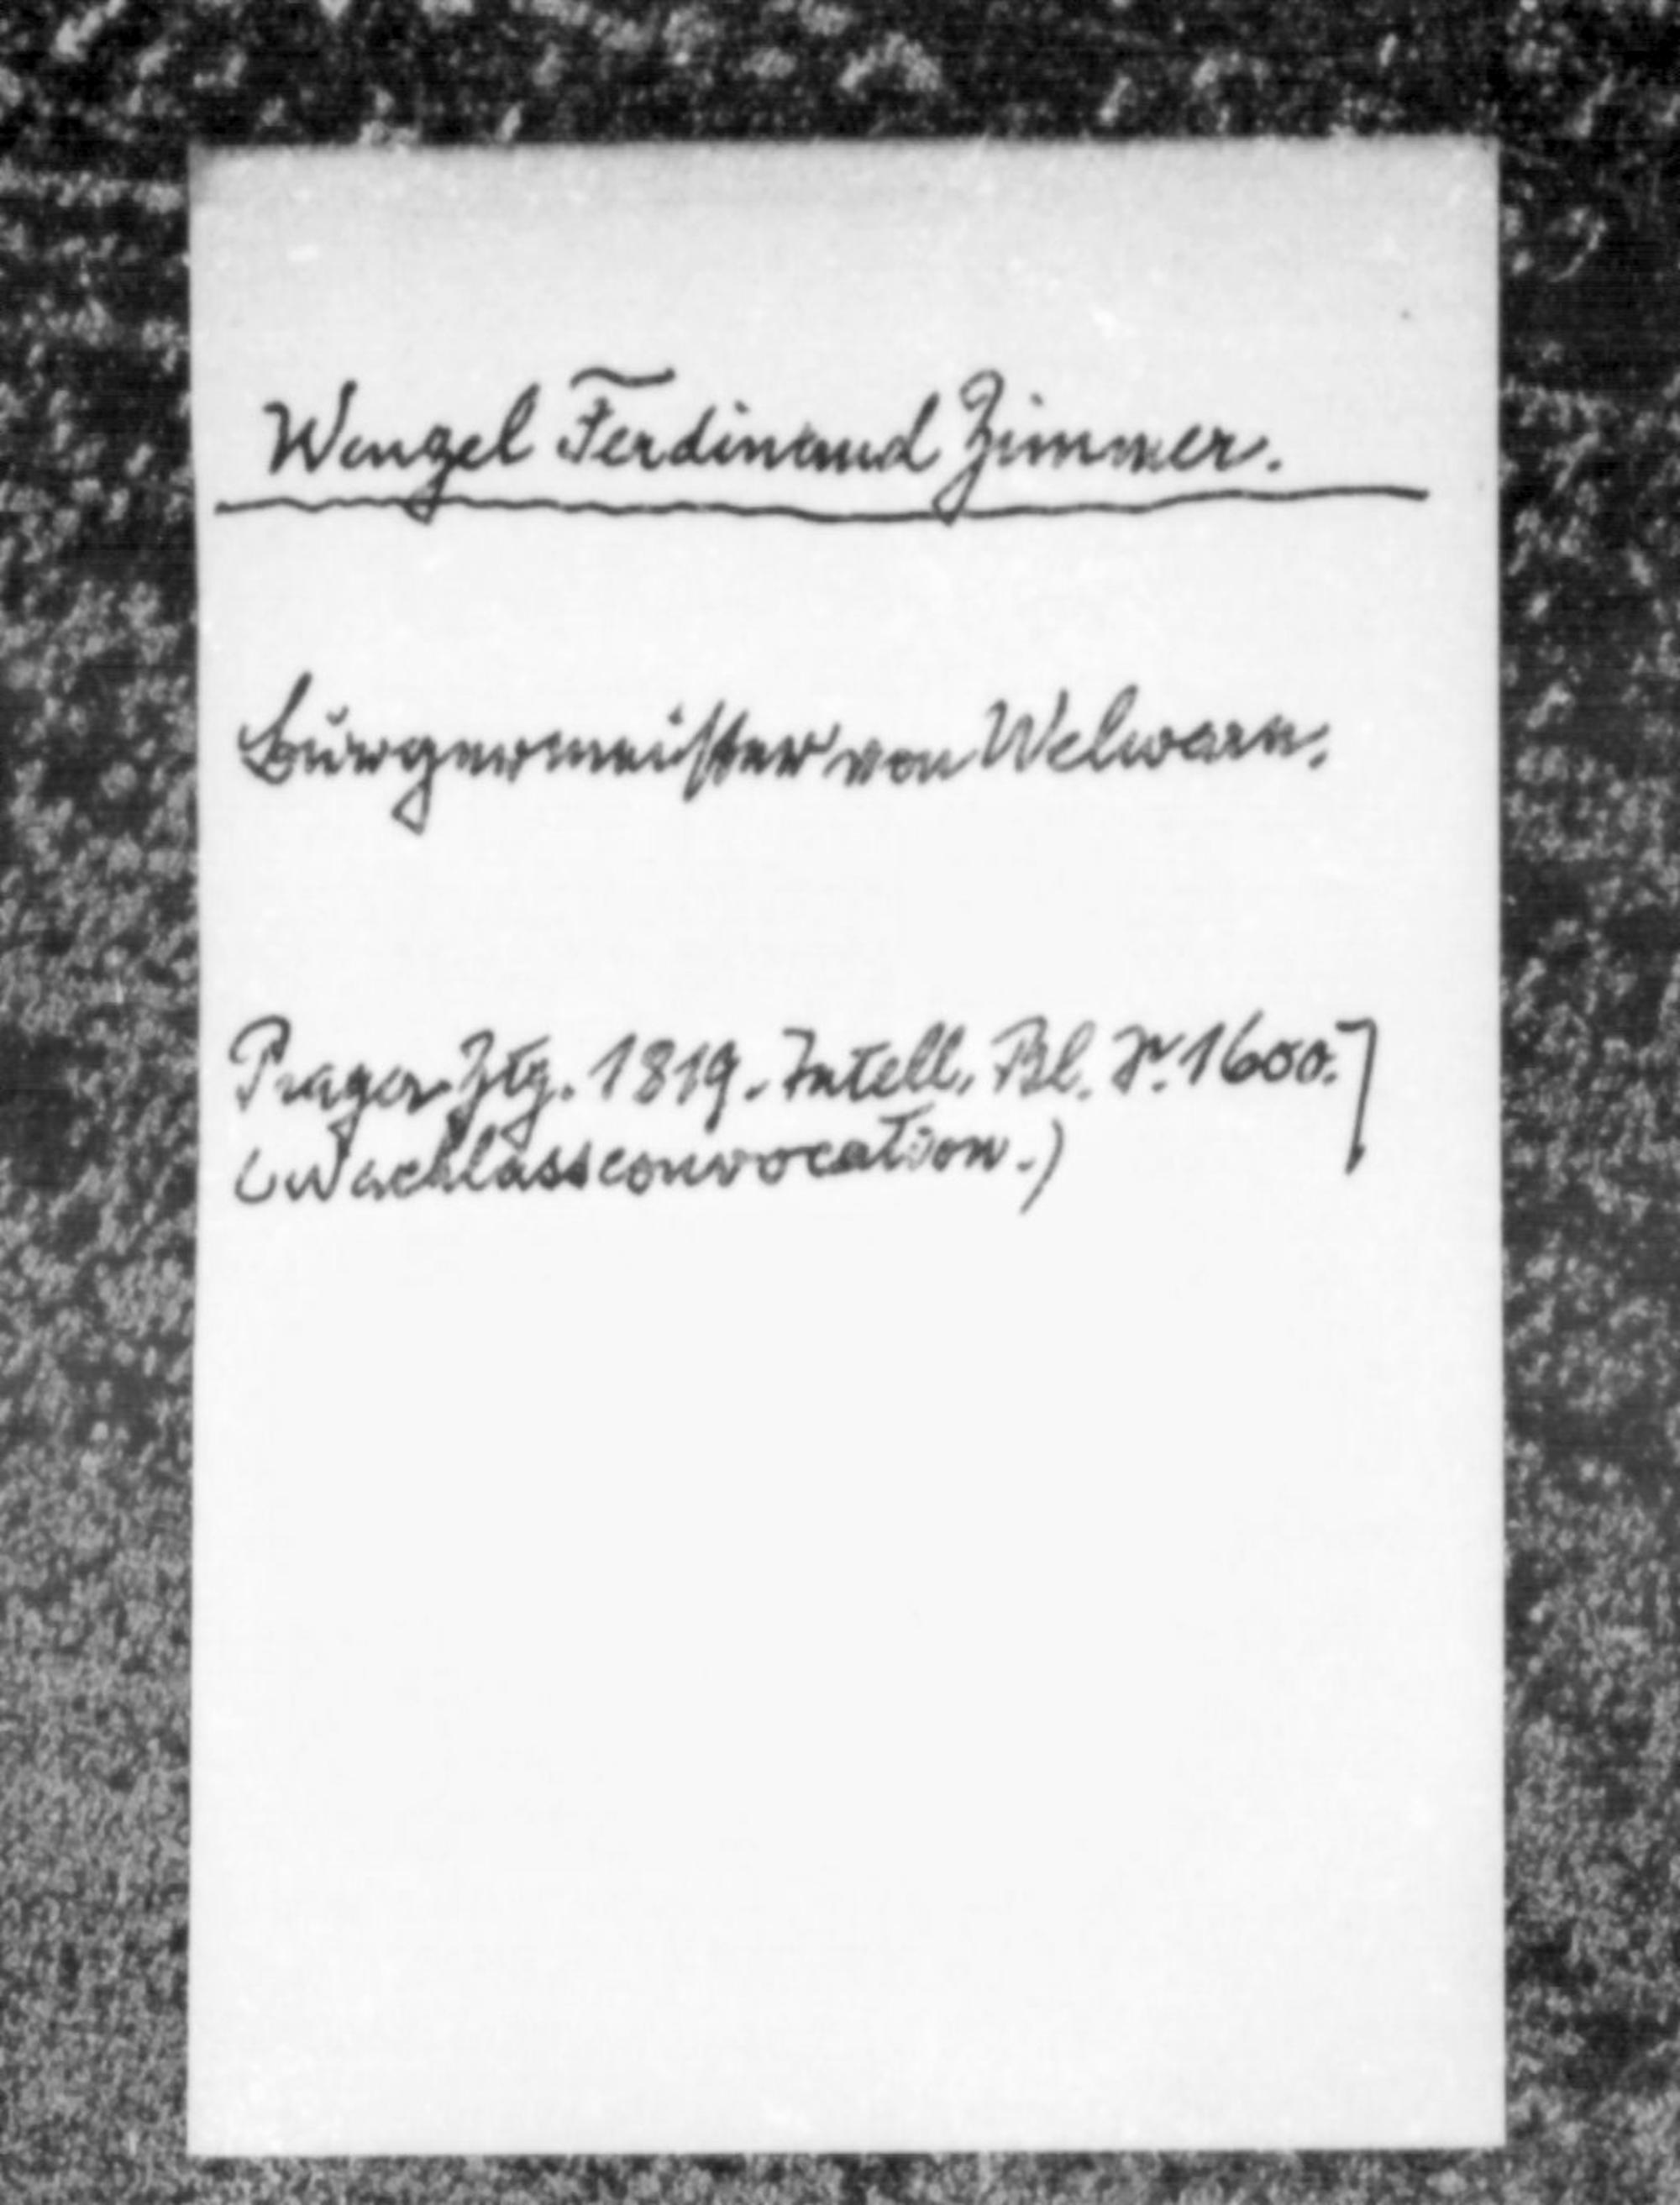 Wenzel Ferdinand Zimmer.
Bürgermeister von Welwarn.
Prager Ztg. 1819. Intell. Bl. Nr. 1600.]
(Nachlassconvocation.)